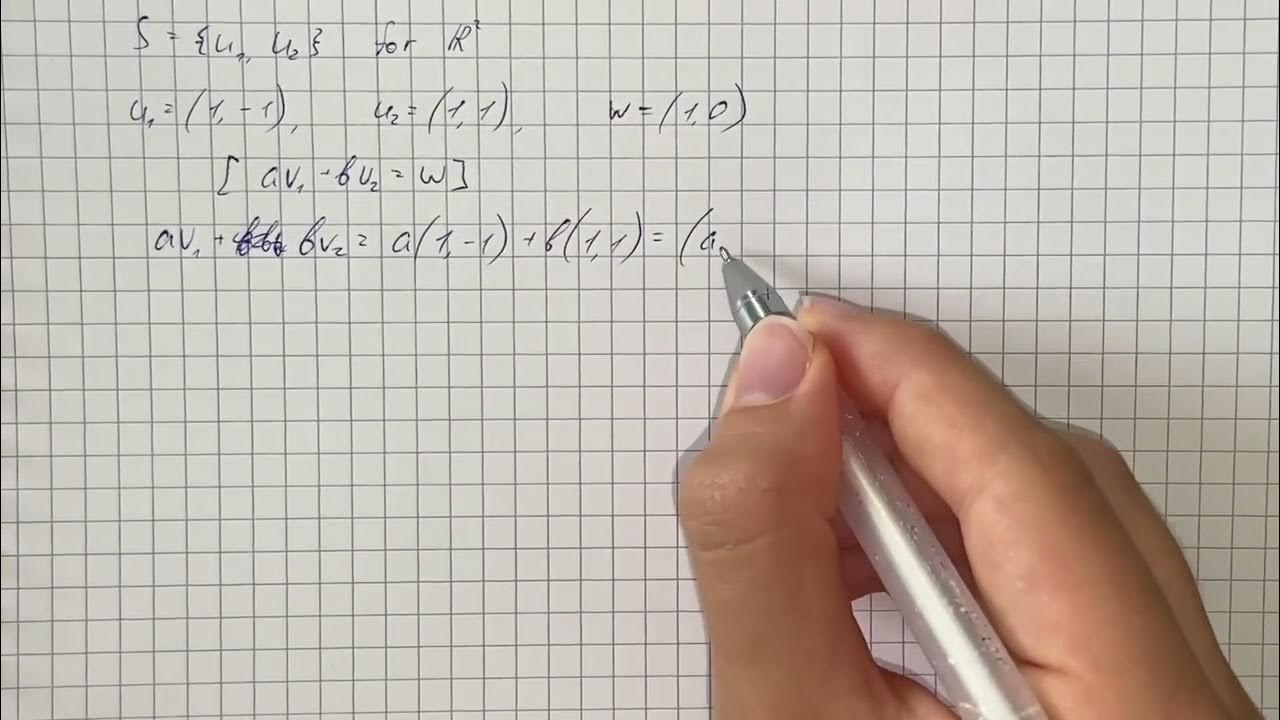 S = {u₁, u₂} for ℝ²
u₁ = (1, -1), u₂ = (1, 1), w = (1, 0)
[ av₁ + bv₂ = w ]
av₁ + bv₂ = a(1, -1) + b(1, 1) = (a,